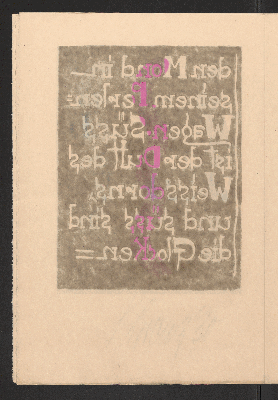 den Mond im
seinem Perlen-
Wagen. Süss
ist der Duft des
Weissdorns,
und süss sind
die Glocken=